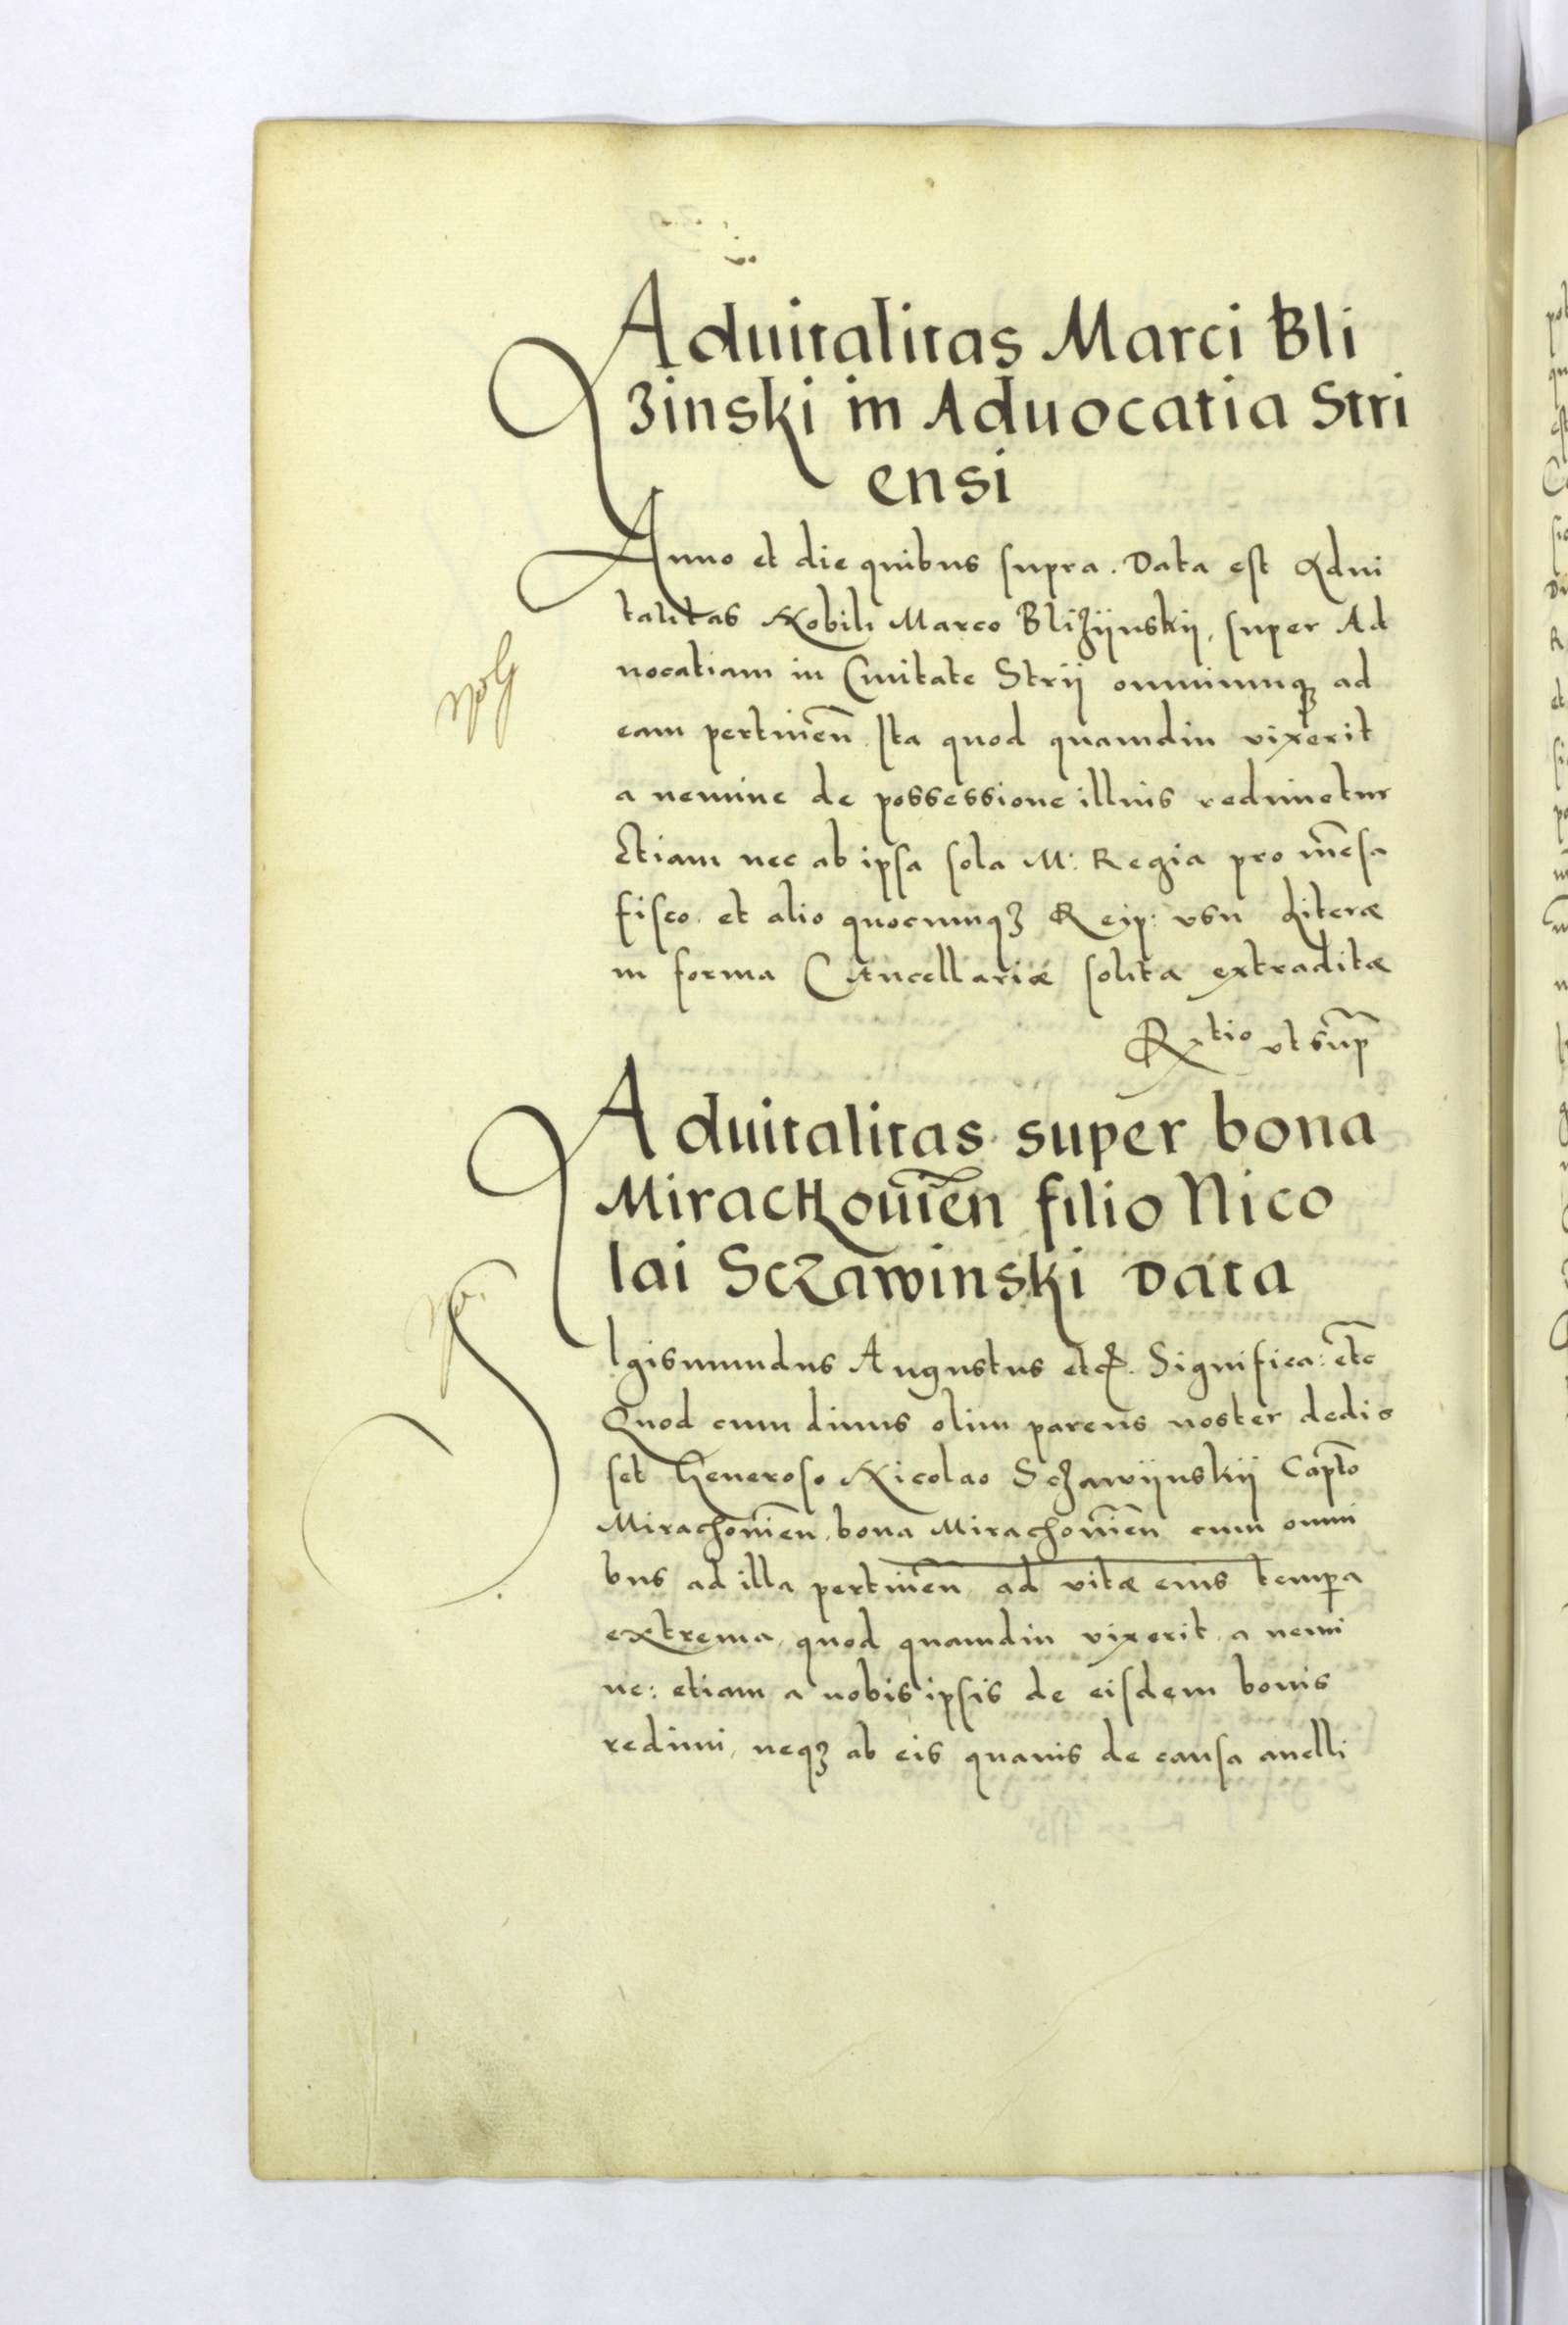 Aduitalitas Marci Bli
zinski in Aduocatia Stri
ensi
Anno et die quibus supra. Data est Adui
talitas Nobili Marco Blizÿnskÿ, super Ad
uocatiam in Ciuitate Strÿ omniumqꝫ ad
eam pertineñ. Ita quod quamdiu vixerit
a nemine de possessione illius redimetur
Etiam nec ab ipsa sola M: Regia pro m̃esa
fisco. et alio quocumqꝫ Reip: vsu Literæ
in forma Cancellariæ solita extraditæ
Rtio vt sup̃
Aduitalitas super bona
Mirachouieñ filio Nico
lai Sczawinski Data
Sigismundus Augustus etc. Significa: etc̃
Quod cum diuus olim parens noster dedis
set Generoso Nicolao Sczawÿnskÿ Capt̃o
Mirachouieñ. bona Mirachouieñ cum omni
bus ad illa pertineñ ad vitæ eius tempa
extrema, quod quamdiu vixerit a nemi
ne: etiam a nobis ipsis de eisdem bonis
redimi, neqꝫ ab eis quauis de causa auelli